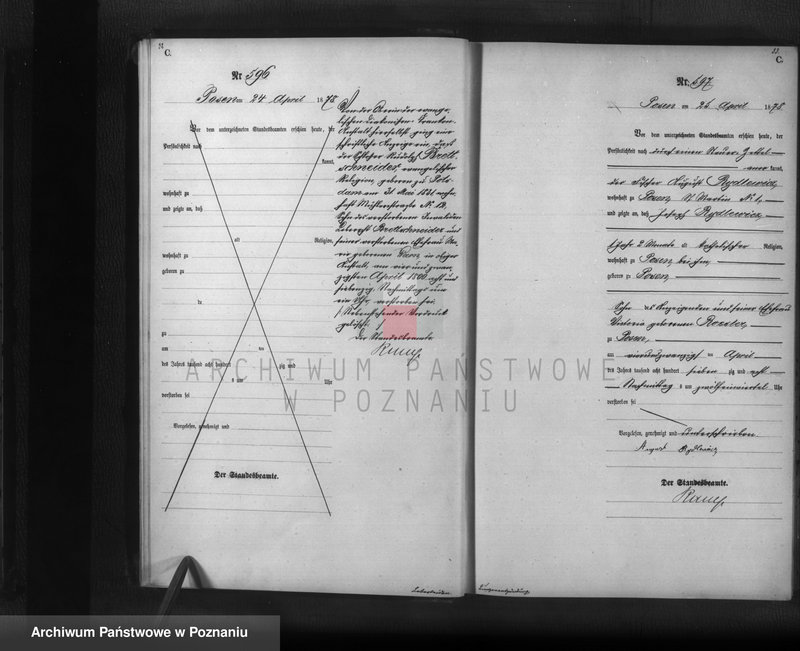 C.
Nr 596
Posen am 24 April 1878
Vor dem unterzeichneten Standesbeamten erschien heute, der
Persönlichkeit nach
kannt,
wohnhaft zu
und zeigte an, daß
alt Religion,
wohnhaft zu
geboren zu
zu
am ten
des Jahres tausend acht hundert zig und
um Uhr
verstorben sei
Vorgelesen, genehmigt und
Der Standesbeamte.
Von der Oberin der evange-
lischen Diakonissen Kranken-
Anstalt hierselbst ging eine
schriftliche Anzeige ein, daß
der Rudolph Brett-
schneider, evangelischer
Religion, geboren zu Pots-
dam am 31 Mai 1821 wohn-
haft Mühlenstraße N. 12,
Sohn des verstorbenen Invaliden
Bretschneider und
seiner verstorbenen Ehefrau Ma-
rie geborenen in obiger
Anstalt, am vier und zwan-
zigsten April 1800 acht und
siebenzig, Nachmittags um
ein Uhr, verstorben sei.
Nebenstehender Vordruck
gelöscht.
Der Standesbeamte
C.
Nr. 597
Posen am 24 April 1878
Vor dem unterzeichneten Standesbeamten erschien heute, der
Persönlichkeit nach durch einen Steuer Zettel
aner kannt,
der August Rydlewicz
wohnhaft zu Posen St Martin N 1,
und zeigte an, daß Joseph Rydlewicz,
1 Jahr 2 Monate alt katholischer Religion,
wohnhaft zu Posen bei ihm,
geboren zu Posen,
Sohn des Anzeigenden und seiner Ehefrau
Victoria geborenen
zu Posen,
am vierundzwanzigsten April
des Jahres tausend acht hundert sieben zig und acht
Nachmittag um zwölfeinviertel Uhr
verstorben sei
Vorgelesen, genehmigt und unterschrieben.
August Rydlewicz
Der Standesbeamte.
ARCHIWUM PAŃSTWOWE
W POZNANIU
Lungenentzündung
Archiwum Państwowe w Poznaniu